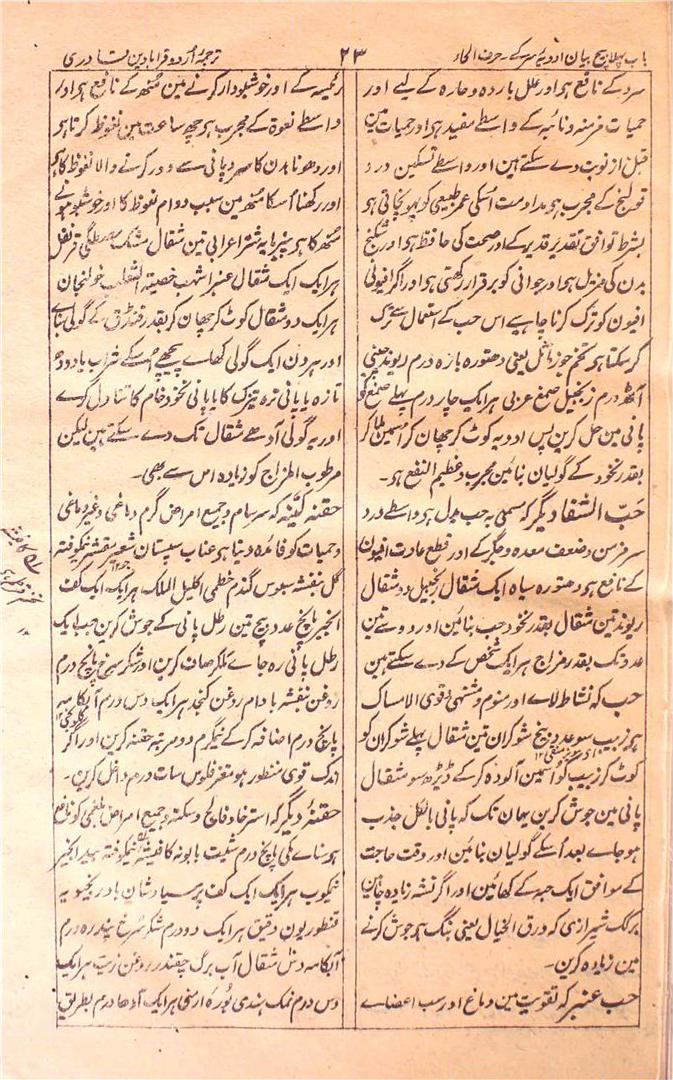 باب پہلا بیچ بیان ادویہ کے حرف الحاء
۲۳
ترجمۂ اُردو قرابادین قادری
سرد کے نافع ہو اور علل باردہ و حارہ کے لیے اور
حمیات مزمنہ و نائبہ کے واسطے مفید ہو اور حمیات مین
قبل از نوبت دے سکتے ہین اور واسطے تسکین درد
قولنج کے مجرب ہو مداومت اُسکی عمر طبیعی کو پہونچاتی ہو
بشرط توافق تقدیر قدیر کے اور صحت کی حافظ ہو اور
بدن کی مزیل ہو اور جوانی کو برقرار رکھتی ہو اور اگر افیونی
افیون کو ترک کرنا چاہے اس حب کے استعمال سے ترک
کر سکتا ہو تخم جوز ماثل یعنی دھتورہ بارہ درم ریوند چینی
آٹھ درم زنجبیل صمغ عربی ہر ایک چار درم پہلے صمغ کو
پانی مین حل کرین پس ادویہ کوٹ کر چھان کر اسمین ملا کر
بقدر نخود کے گولیان بنائین مجرب و عظیم النفع ہو۔
حَبّ الشفا دیگر کہ مسمیٰ بہ حب جدل ہو واسطے درد
سر مزمن و ضعف معدہ و جگر کے اور قطع عادت افیون
کے نافع ہو دھتورہ سیاہ ایک مثقال زنجبیل دو مثقال
ریوند تین مثقال بقدر نخود حب بنائین اور دو سے تین
عدد تک بقدر مزاج ہر ایک شخص کے دے سکتے ہین
حب کہ نشاط لائے اور منوم و مشتہی و قوی الامساک
ہو زبیب سو عدد بیخ شوکران تین مثقال پہلے شوکران کو
کوٹ کر زبیب کو اسمین آلودہ کر کے ڈیڑھ سو مثقال
پانی مین جوش کرین یہان تک کہ پانی بالکل جذب
ہو جاے بعد اُسکے گولیان بنائین اور وقت حاجت
کے موافق ایک حبہ کے کھائین اور اگر نشہ زیادہ چاہین
برگ شیرازی کہ ورق الخیال یعنی بنگ ہو جوش کرنے
مین زیادہ کرین۔
حب عنبر کہ تقویت مین دماغ اور سب اعضاے
رئیسہ کے اور خوشبودار کرنے مین مُنھ کے نافع ہو اور
واسطے نعوظ کے مجرب ہو چھ ساعت مین نعوظ کرتا ہو
اور دھونا بدن کا سرد پانی سے دور کرنے والا نعوظ کا ہو
اور رکھنا اُسکا مُنھ مین سبب دوام نعوظ کا اور خوشبو ہونے
مُنھ کا ہو پنیر مایہ شتر اعرابی تین مثقال مشک مصطگی قرنفل
ہر ایک ایک مثقال عنبر اشہب خصیۃ الثعلب خولنجان
ہر ایک دو مثقال کوٹ کر چھان کر بقدر فندق کے گولی بنائے
اور ہر دن ایک گولی کھاے پیچھے اُسکے شراب یا دودھ
تازہ یا پانی ترہ تیزک کا یا پانی نخود خام کا تناول کرے
اور یہ گولی آدھے مثقال تک دے سکتے ہین لیکن
مرطوب المزاج کو زیادہ اس سے بھی۔
حقنہ لینہ کہ سرسام و جمیع امراض گرم دماغی و غیر دماغی
و حمیات کو فائدہ دیتا ہو عناب سپستان شعیر مقشر نیمکوفتہ
گل بنفشہ سبوس گندم خطمی اکلیل الملک ہر ایک ایک کف
انجیر پانچ عدد بیچ تین رطل پانی کے جوش کرین جب ایک
رطل پانی رہ جاے ملکر صاف کرین اور شکر سرخ پانچ درم
روغن بنفشہ بادام روغن کنجد ہر ایک دس درم آبکامہ
پانچ درم اضافہ کر کے نیمگرم دو مرتبہ حقنہ کرین اور اگر
اندک قوی منظور ہو مغز فلوس سات درم داخل کرین۔
حقنۂ دیگر کہ استرخا و فالج و سکتہ و جمیع امراض بلغمی کو نافع
ہو سناے مکی پانچ درم شبت بابونہ کافیشہ نیمکوفتہ بید انجیر
نیمکوب ہر ایک ایک کف پر سیاوشان بادرنجبویہ
قنطوریون دقیق ہر ایک دو درم شکر سُرخ پندرہ درم
آبکامہ دس مثقال آب برگ چقندر روغن زیت ہر ایک
دس درم نمک ہندی بُورہ ارمنی ہر ایک آدھا درم بطریق